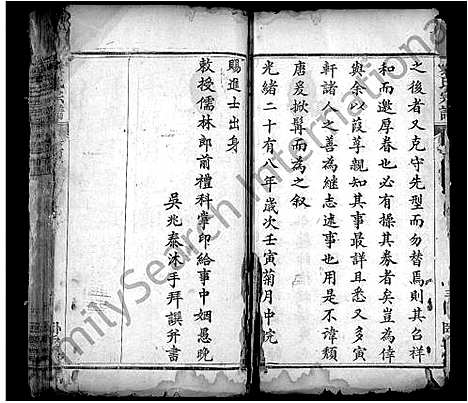 之後者又克守先型而勿替焉則其召祥
和而邀厚眷也必有操其券者矣豈為倖
與余以葭莩親知其事最詳且悉又多寅
軒諸人之善為繼志述事也用是不諱頹
唐爰掀髯而為之叙
光緒二十有八年歲次壬寅菊月中浣
賜進士出身
敕授儒林郎前禮科掌印給事中姻愚晚
吳兆泰沐手拜譔并書
FamilySearch International